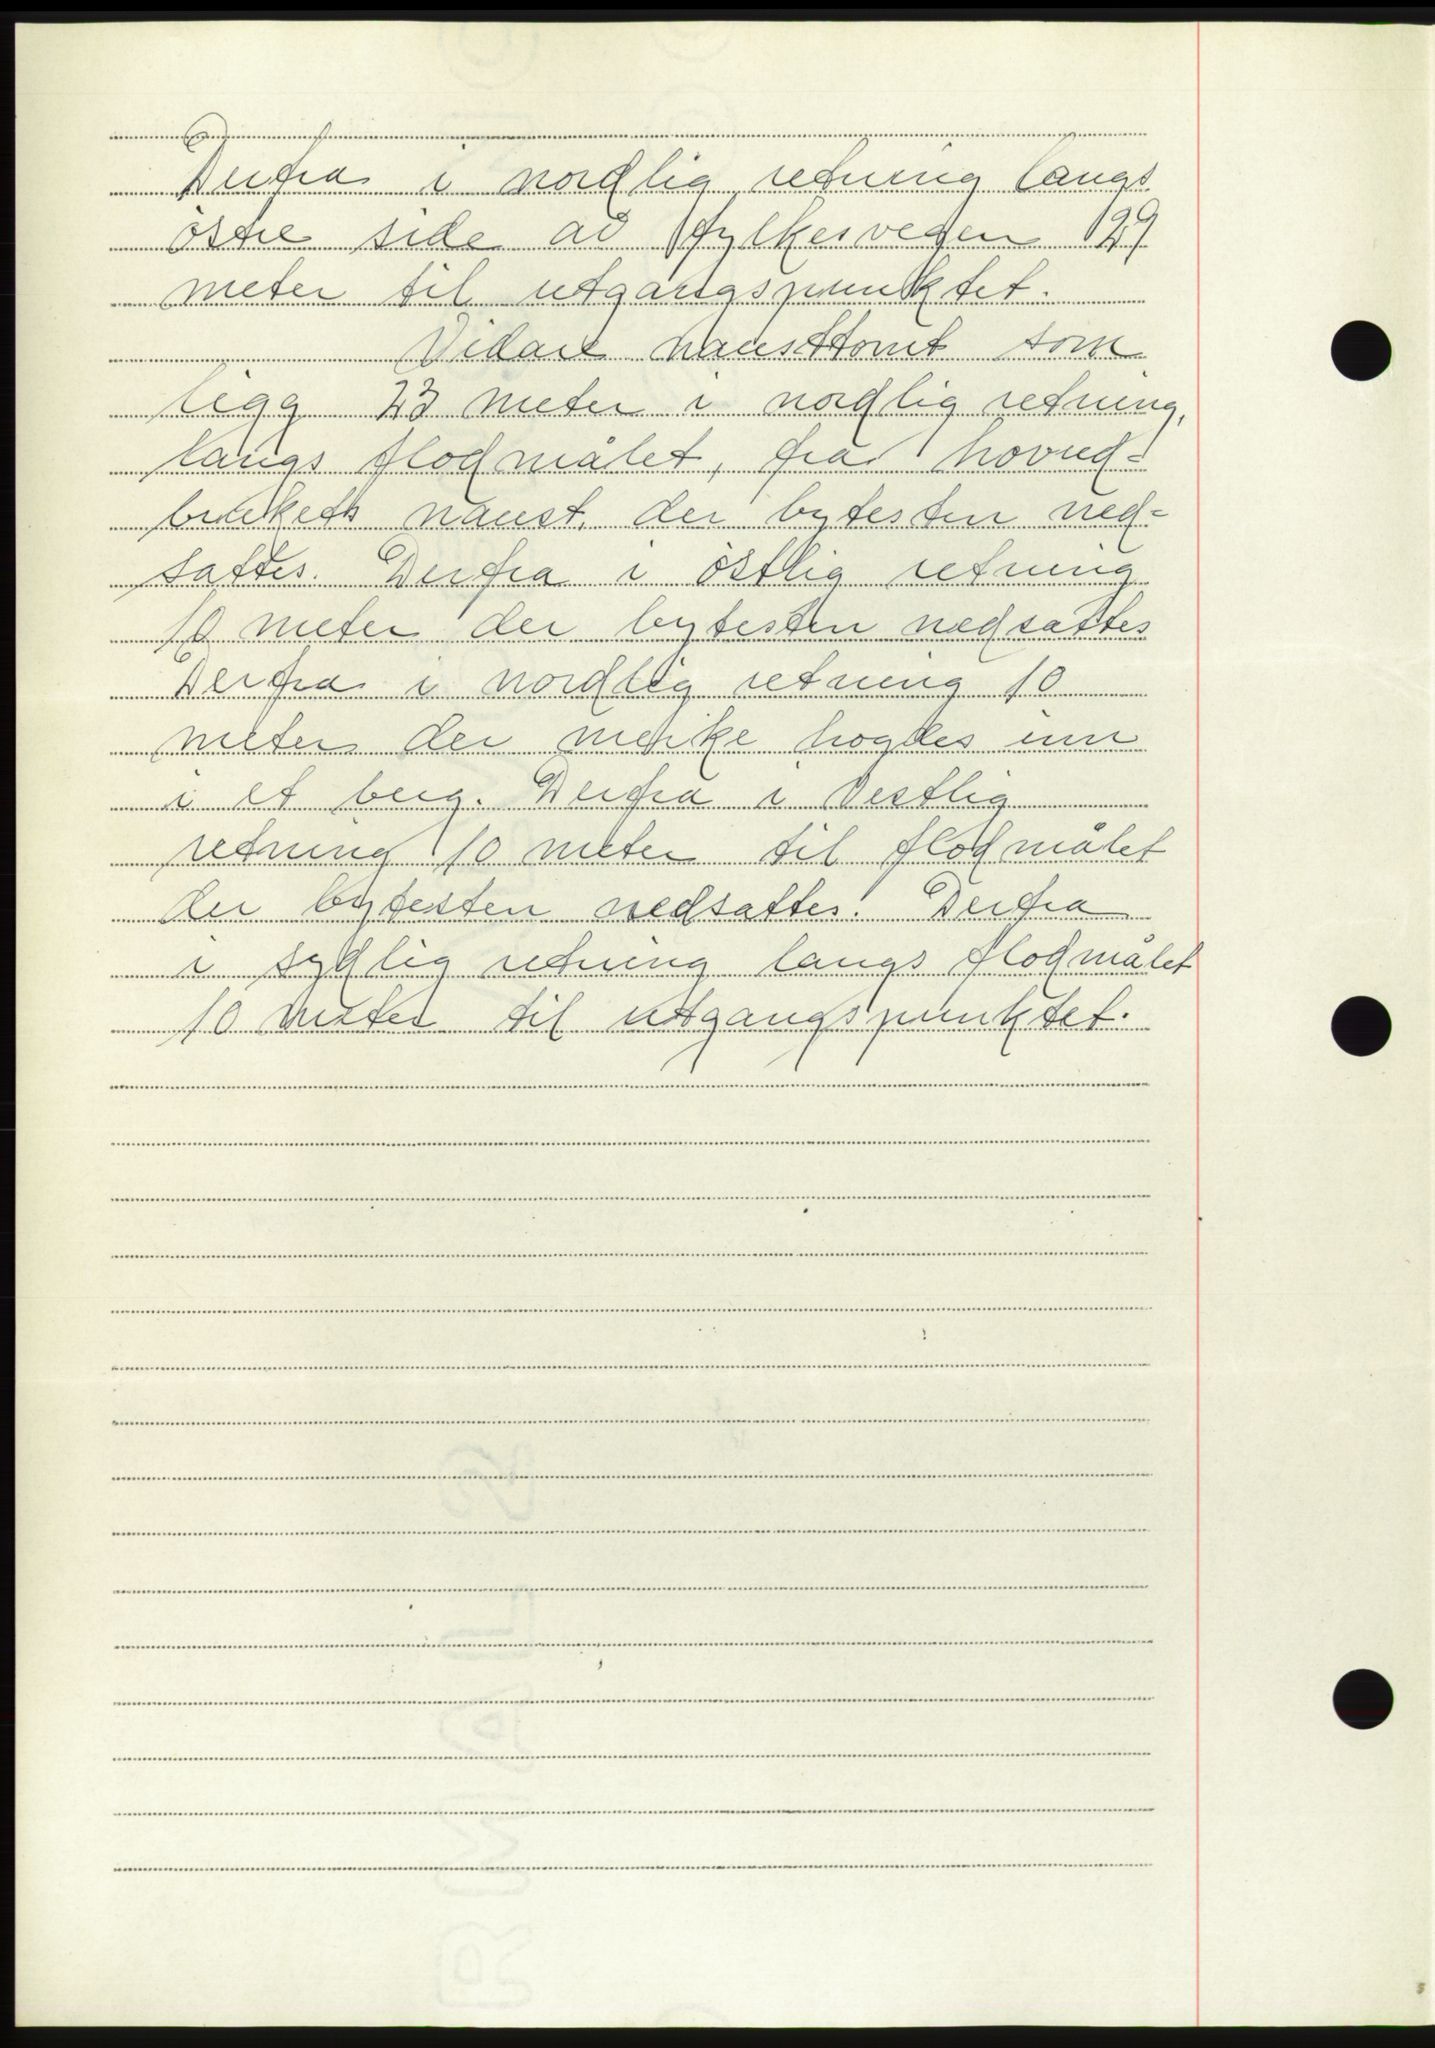 Derfra i nordlig retning langs
östre side av fylkesvegen 29
meter til utgangspunktet.
Vidare nausttomt som
ligg 23 meter i nordlig retning,
langs flodmålet, fra hovud-
brukets naust, der bytesten ned-
sattes. Derfra i östlig retning
10 meter der bytesten nedsattes
Derfra i nordlig retning 10
meter der merke hogdes inn
i et berg. Derfra i vestlig
retning 10 meter til flodmålet
der bytesten nedsattes. Derfra
i sydlig retning langs flodmålet
10 meter til utgangspunktet.